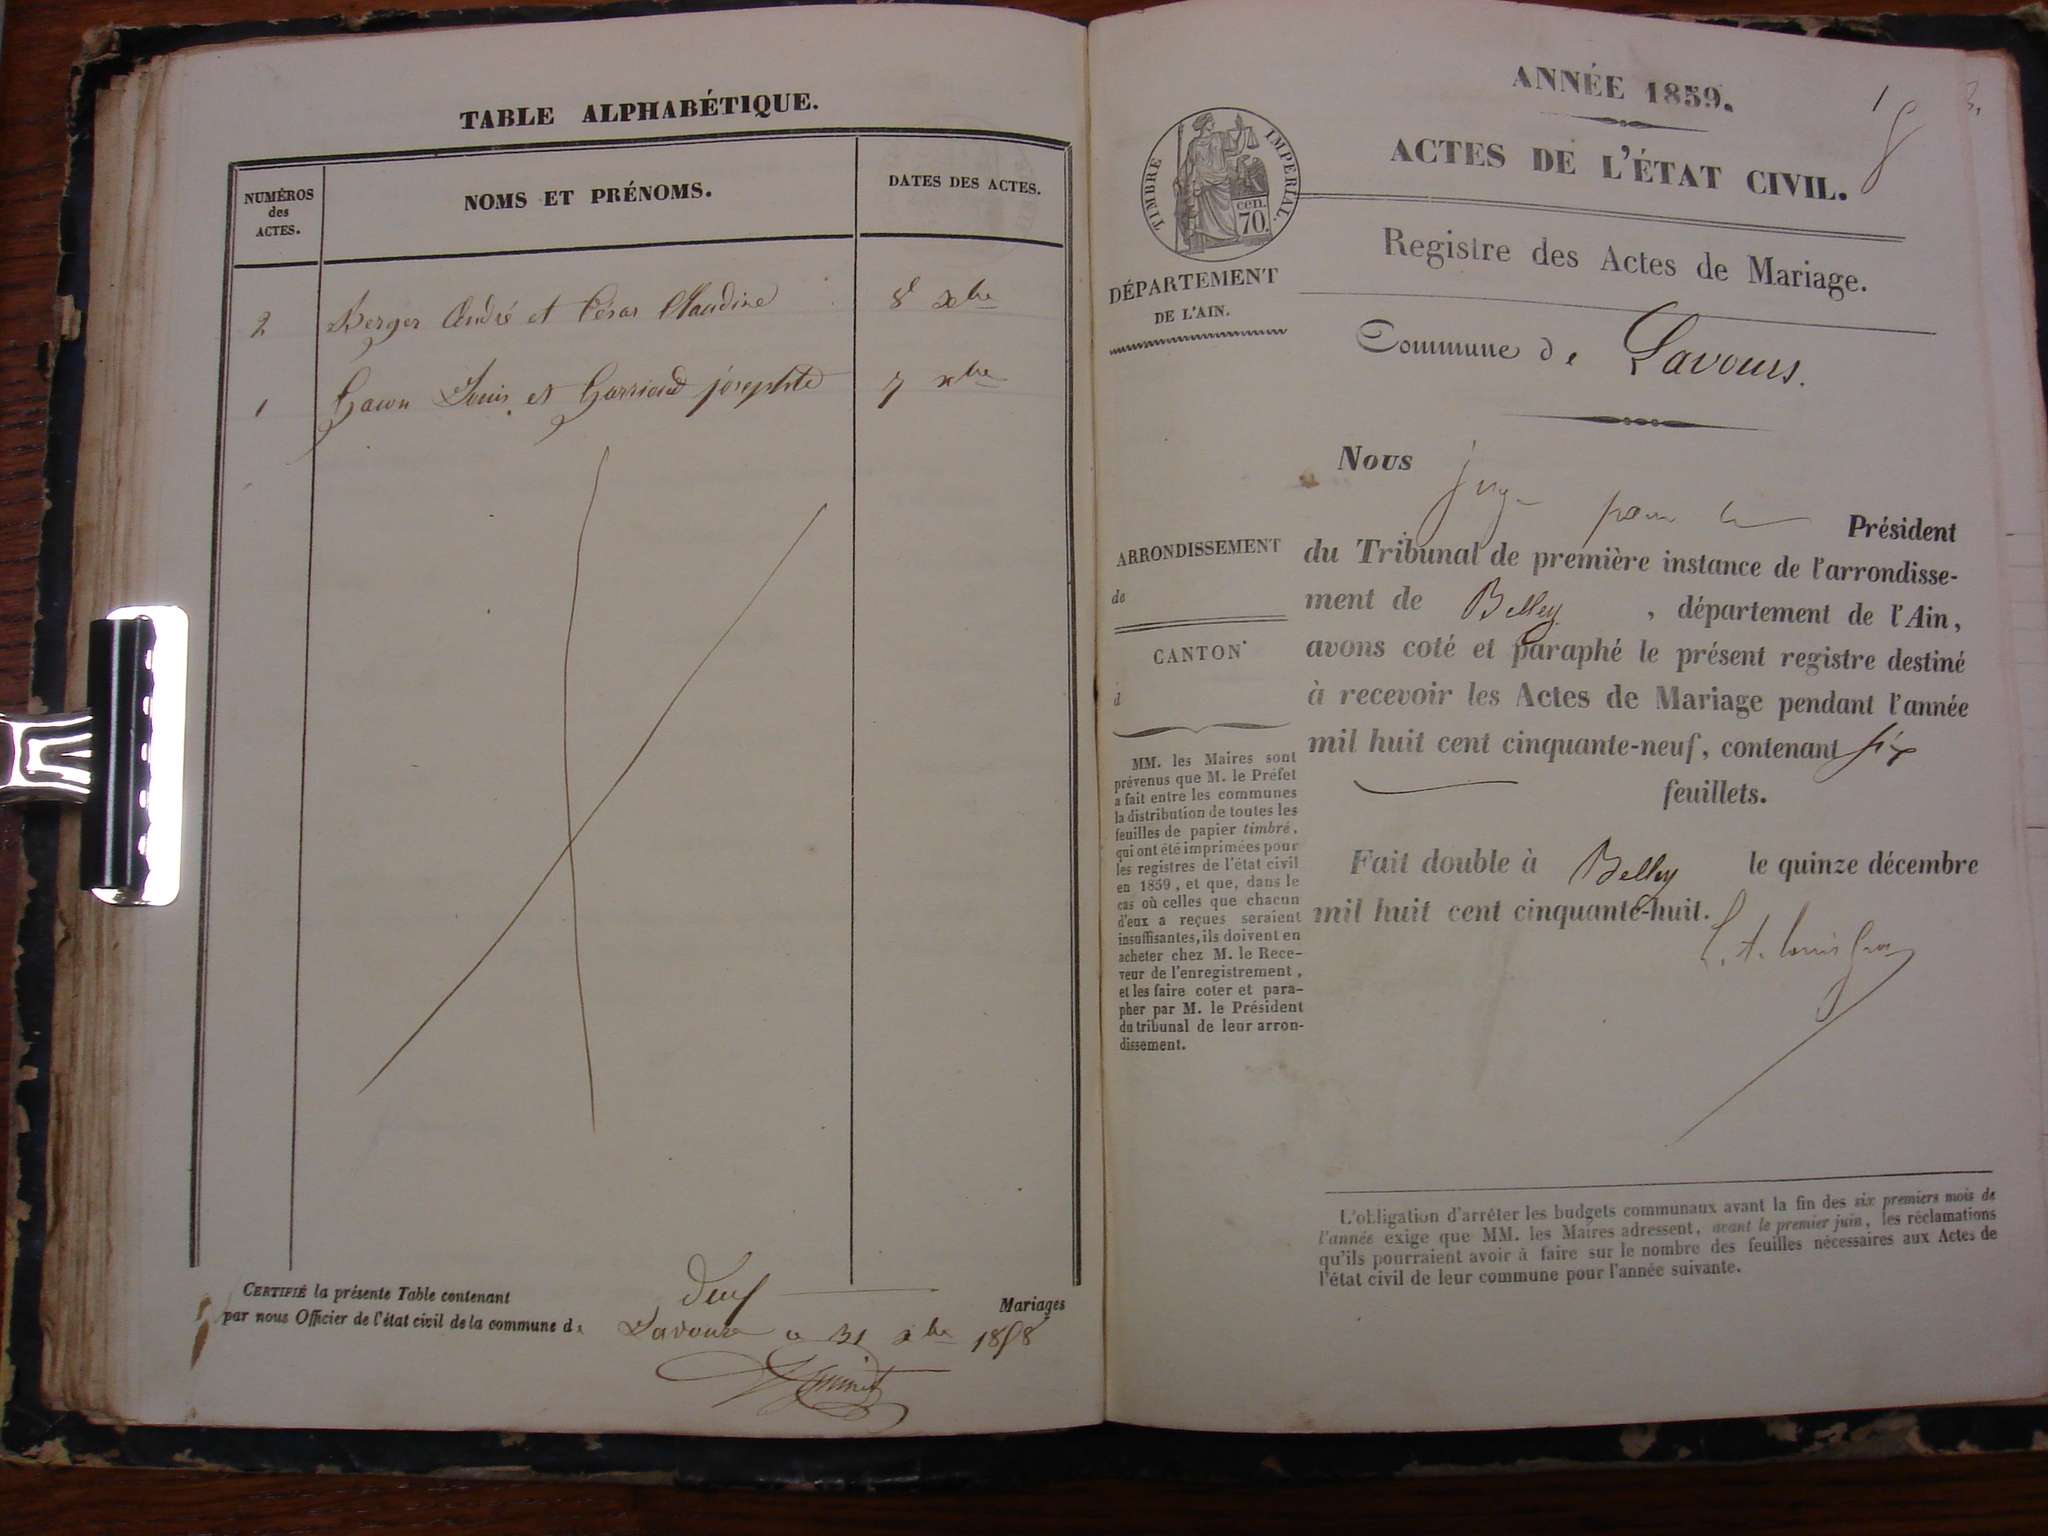 TABLE ALPHABÉTIQUE.
NUMÉROS
des
ACTES.
NOMS ET PRÉNOMS.
DATES DES ACTES.
2 Berger André et César Claudine 8 xbre
1 Gacon Louis et Garriaud josephte 7 xbre
CERTIFIÉ la présente Table contenant deux Mariages
par nous Officier de l'état civil de la commune de Lavours ce 31 xbre 1858
ANNÉE 1859.
1
ACTES DE L'ÉTAT CIVIL.
TIMBRE IMPERIAL.
cen.
70.
Registre des Actes de Mariage.
DÉPARTEMENT
DE L'AIN.
Commune de Lavours.
Nous juge pour le Président
du Tribunal de première instance de l'arrondisse-
ment de Belley, département de l'Ain,
avons coté et paraphé le présent registre destiné
à recevoir les Actes de Mariage pendant l'année
mil huit cent cinquante-neuf, contenant six
feuillets.
Fait double à Belley le quinze décembre
mil huit cent cinquante-huit.
ARRONDISSEMENT
de
CANTON
d
MM. les Maires sont
prévenus que M. le Préfet
a fait entre les communes
la distribution de toutes les
feuilles de papier timbré,
qui ont été imprimées pour
les registres de l'état civil
en 1859, et que, dans le
cas où celles que chacun
d'eux a reçues seraient
insuffisantes, ils doivent en
acheter chez M. le Rece-
veur de l'enregistrement,
et les faire coter et para-
pher par M. le Président
du tribunal de leur arron-
dissement.
L'obligation d'arrêter les budgets communaux avant la fin des six premiers mois de
l'année exige que MM. les Maires adressent, avant le premier juin, les réclamations
qu'ils pourraient avoir à faire sur le nombre des feuilles nécessaires aux Actes de
l'état civil de leur commune pour l'année suivante.